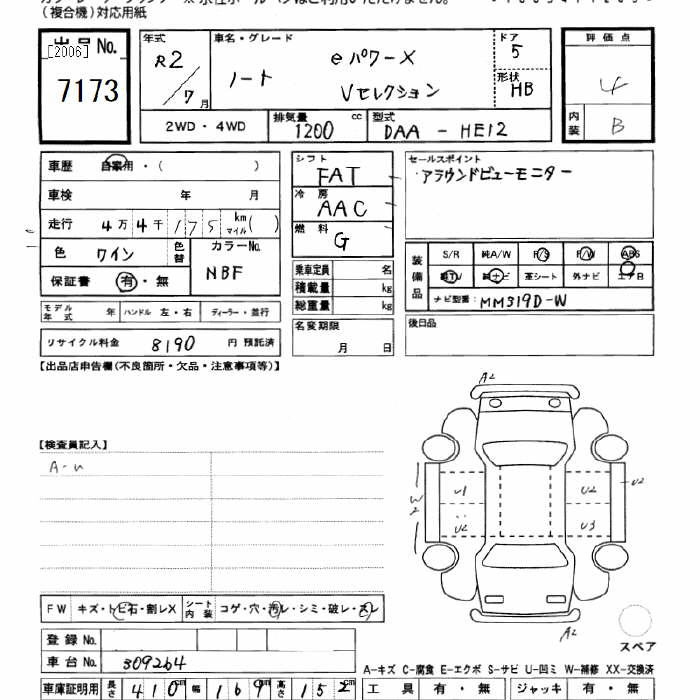 (複合機)対応用紙
出品No. [2006]
7173
年式 R2/7月
車名・グレード ノート eパワーX Vセレクション
ドア 5
形状 HB
2WD・4WD
排気量 1200 cc
型式 DAA - HE12
評価点 4
内装 B
車歴 自家用・( )
車検 年 月
走行 4万4千175 km マイル( )
色 ワイン 色替
カラーNo. NBF
保証書 有・無
シフト FAT
冷房 AAC
燃料 G
乗車定員 名
積載量 kg
総重量 kg
セールスポイント
アラウンドビューモニター
装備品 S/R 純A/W P/S P/W ABS
純TV 純ナビ 革シート 外ナビ エアB
ナビ型番: MM319D-W
モデル年式 年 ハンドル 左・右 ディーラー・並行
名変期限 月 日
後日品
リサイクル料金 8190 円 預託済
【出品店申告欄(不良箇所・欠品・注意事項等)】
A2
【検査員記入】
A-U
W2
U1 U2 U2
U2 U3
A2
FW キズ・トビ石・割レX シート内装 コゲ・穴・汚レ・シミ・破レ・スレ
登録No.
車台No. 309264
スペア
A-キズ C-腐食 E-エクボ S-サビ U-凹ミ W-補修 XX-交換済
車庫証明用 長さ 410cm 幅 169cm 高さ 152cm
工具 有・無 ジャッキ 有・無